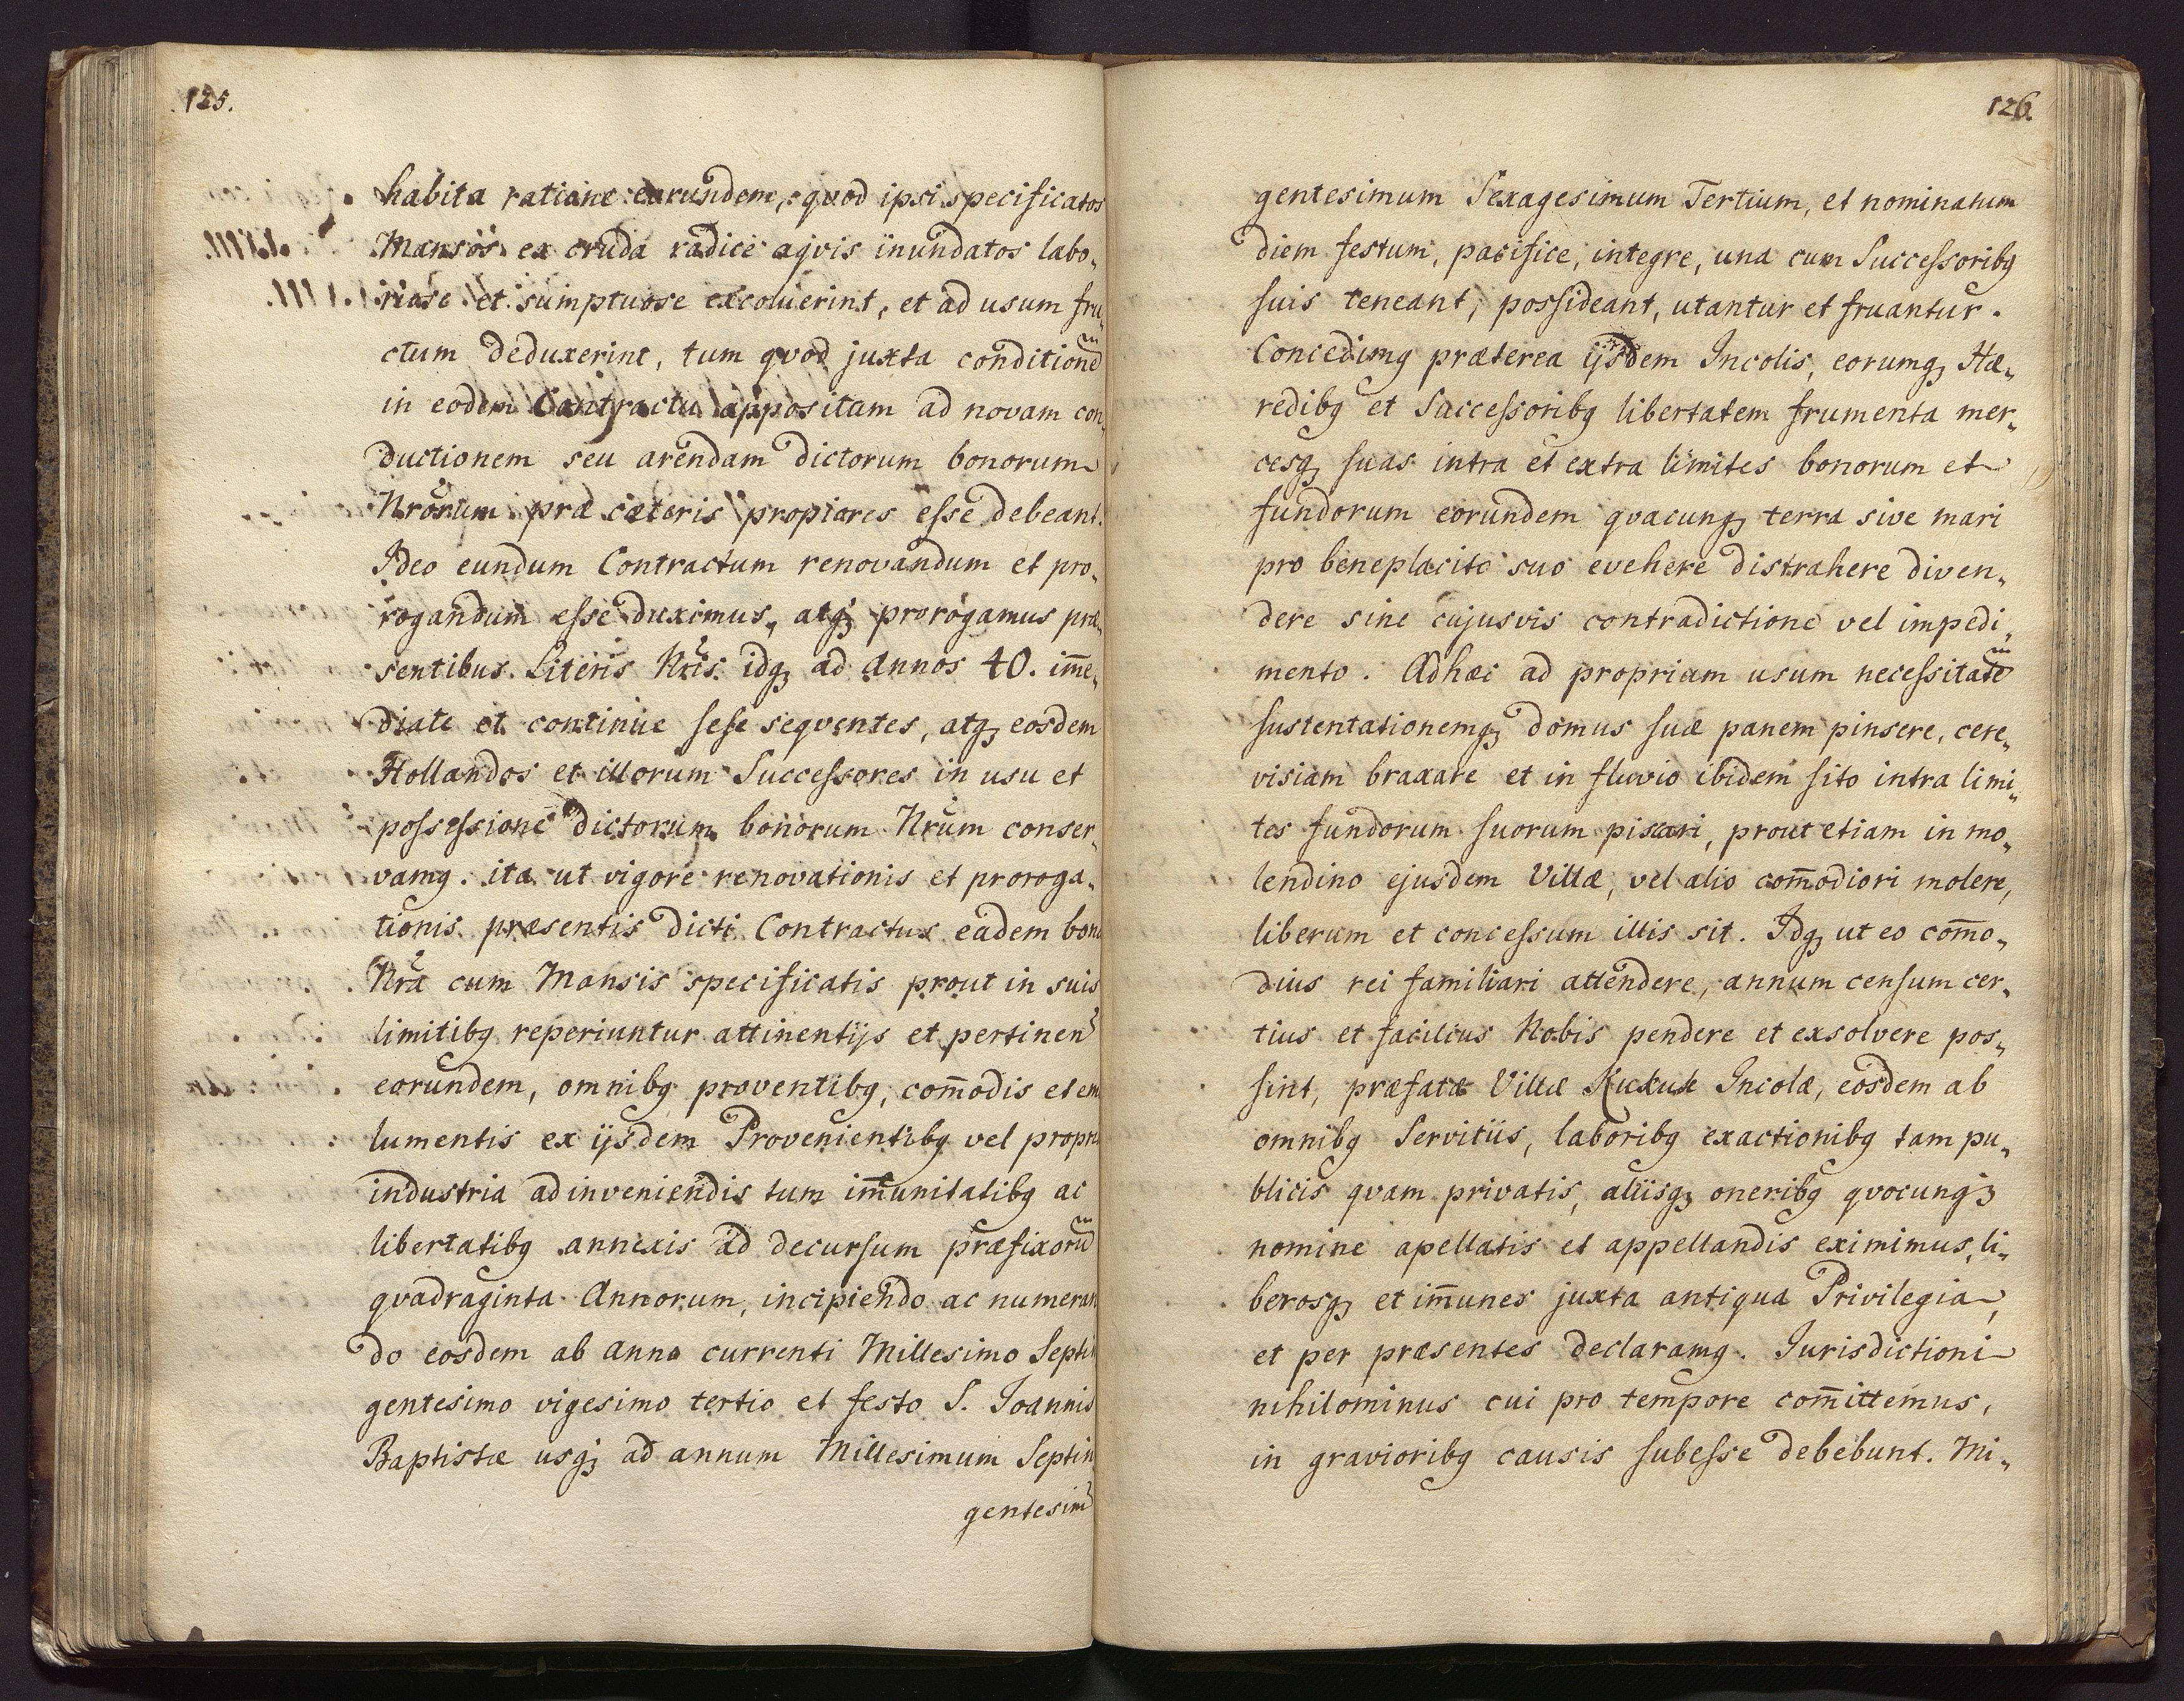 125.
habita ratione earundem, qvod ipsi specificatos
Mansos ex cruda radice aqvis inundatos labo„
riose et sumptuose excoluerint, et ad usum fru„
ctum deduxerint, tum qvod juxta conditionẽ
in eodem Contractu appositam ad novam con„
ductionem seu arendam dictorum bonorum
Nrorum præ cæteris propiores esse debeant.
Ideo eundum Contractum renovandum et pro„
rogandum esse duximus, atqꝫ prorogamus præ„
sentibus Literis Nris idqꝫ ad annos 40. im̄e„
diate et continue sese seqventes, atqꝫ eosdem
Hollandos et illorum Successores in usu et
possessione dictorum bonorum Nrum conser„
vamꝰ. ita ut vigore renovationis et proroga„
tionis præsentis dicti Contractus eadem bona
Nra cum Mansis specificatis prout in suis
limitibꝰ reperiuntur attinentijs et pertinen
eorundem, omnibꝰ proventibꝰ, com̄odis et emo
lumentis ex ijsdem Provenientibꝰ vel propria
industria adinveniendis tum im̄unitatibꝰ ac
libertatibꝰ annexis ad decursum præfixorũ
qvadraginta Annorum, incipiendo ac numeran
do eosdem ab anno currenti Millesimo Septin
gentesimo vigesimo tertio et festo S. Joannis
Baptistæ usqꝫ ad annum Millesimum Septin
gentesim
126.
gentesimum Sexagesimum Tertium, et nominatum
diem festum, pacifice, integre, una cum Successoribꝰ
suis teneant, possideant, utantur et fruantur.
Concedimꝰ præterea ijsdem Incolis, eorumqꝫ Hæ„
redibꝰ et Saccessoribꝰ libertatem frumenta mer„
cesqꝫ suas intra et extra limites bonorum et
fundorum eorundem qvacunqꝫ terra sive mari
pro beneplacito suo evehere distrahere diven„
dere sine cujusvis contradictione vel impedi„
mento. Adhæc ad propriam usum necessitatẽ
sustentationemqꝫ domus suæ panem pinsere, cere„
visiam braxare et in fluvio ibidem sito intra limi„
tes fundorum suorum piscari, prout etiam in mo„
lendino ejusdem Villæ, vel alio com̄odiori molere,
liberum et concessum illis sit. Idqꝫ ut eo com̄o„
dius rei familiari attendere, annum censum cer„
tius et facilius Nobis pendere et exsolvere pos„
sint, præfatæ Villæ Kuckuk Incolæ, eosdem ab
omnibꝰ Servitiis, laboribꝰ exactionibꝰ tam pu„
blicis qvam privatis, aliisqꝫ oneribꝰ qvocunqꝫ
nomine apellatis et appellandis eximimus, li„
berosqꝫ et im̄unes juxta antiqua Privilegia,
et per præsentes declaramꝰ. Jurisdictioni
nihilominus cui pro tempore com̄ittemus,
in gravioribꝰ causis subesse debebunt. Mi„